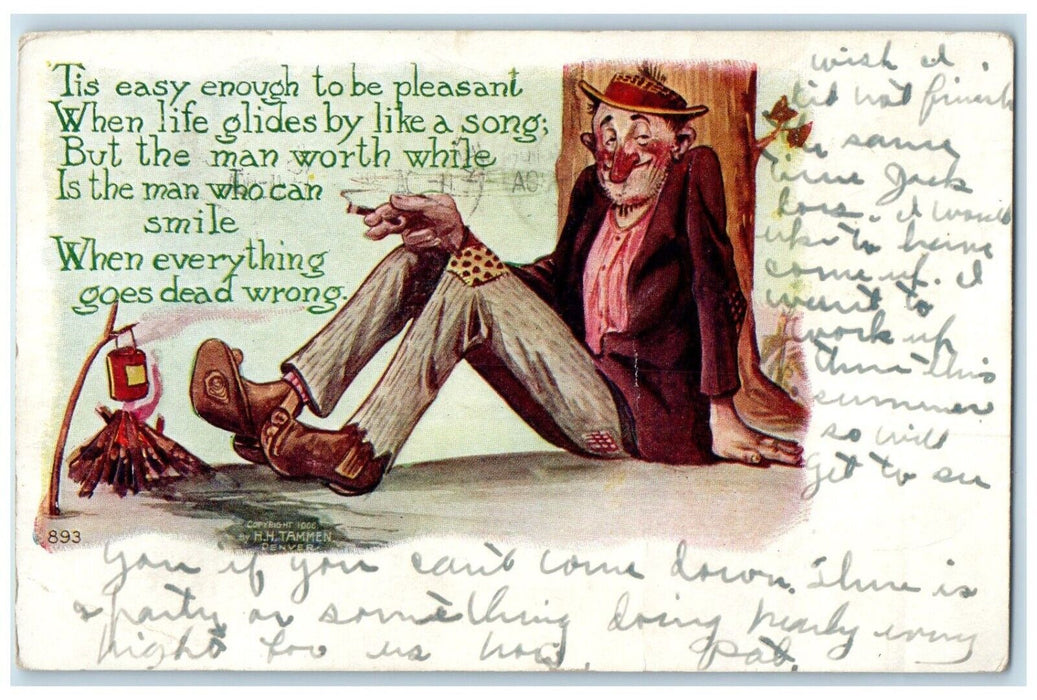 'Tis easy enough to be pleasant
When life glides by like a song;
But the man worth while
Is the man who can
smile
When everything
goes dead wrong.
893
COPYRIGHT 1906
BY H.H. TAMMEN
DENVER
wish I
did not finish
same
time Jack
does. I would
like to have
come up. I
want to
work up
there this
summer
so will
get to see
you if you can't come down. There is
a party or something doing nearly every
night for us now. Pat.